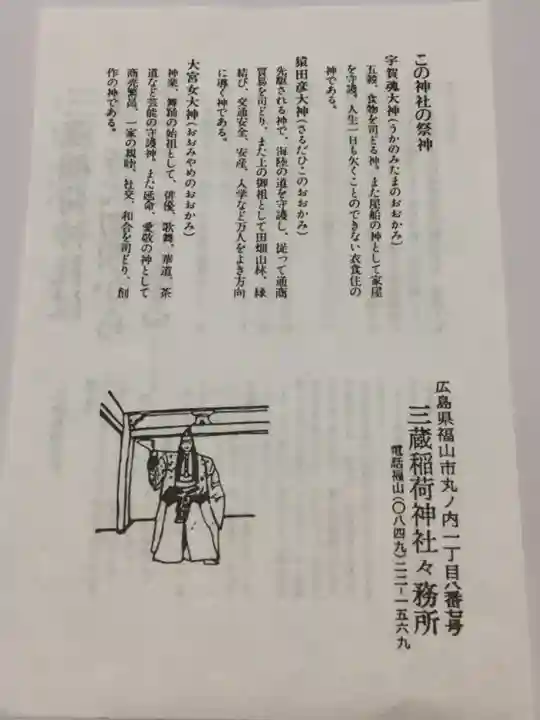 この神社の祭神
宇賀魂大神(うかのみたまのおおかみ)
五穀、食物を司どる神。また屋船の神として家屋
を守護。人生一日も欠くことのできない衣食住の
神である。
猿田彦大神(さるだひこのおおかみ)
先駆される神で、海陸の道を守護し、従って通商
貿易を司どり、また土の御祖として田畑山林、縁
結び、交通安全、安産、入学など万人をよき方向
に導く神である。
大宮女大神(おおみやめのおおかみ)
神楽、舞踊の始祖として、俳優、歌舞、華道、茶
道など芸能の守護神。また延命、愛敬の神として
商売繁昌、一家の親睦、社交、和合を司どり、創
作の神である。
広島県福山市丸ノ内一丁目八番七号
三蔵稲荷神社々務所
電話福山(〇八四九)二二-一五六九